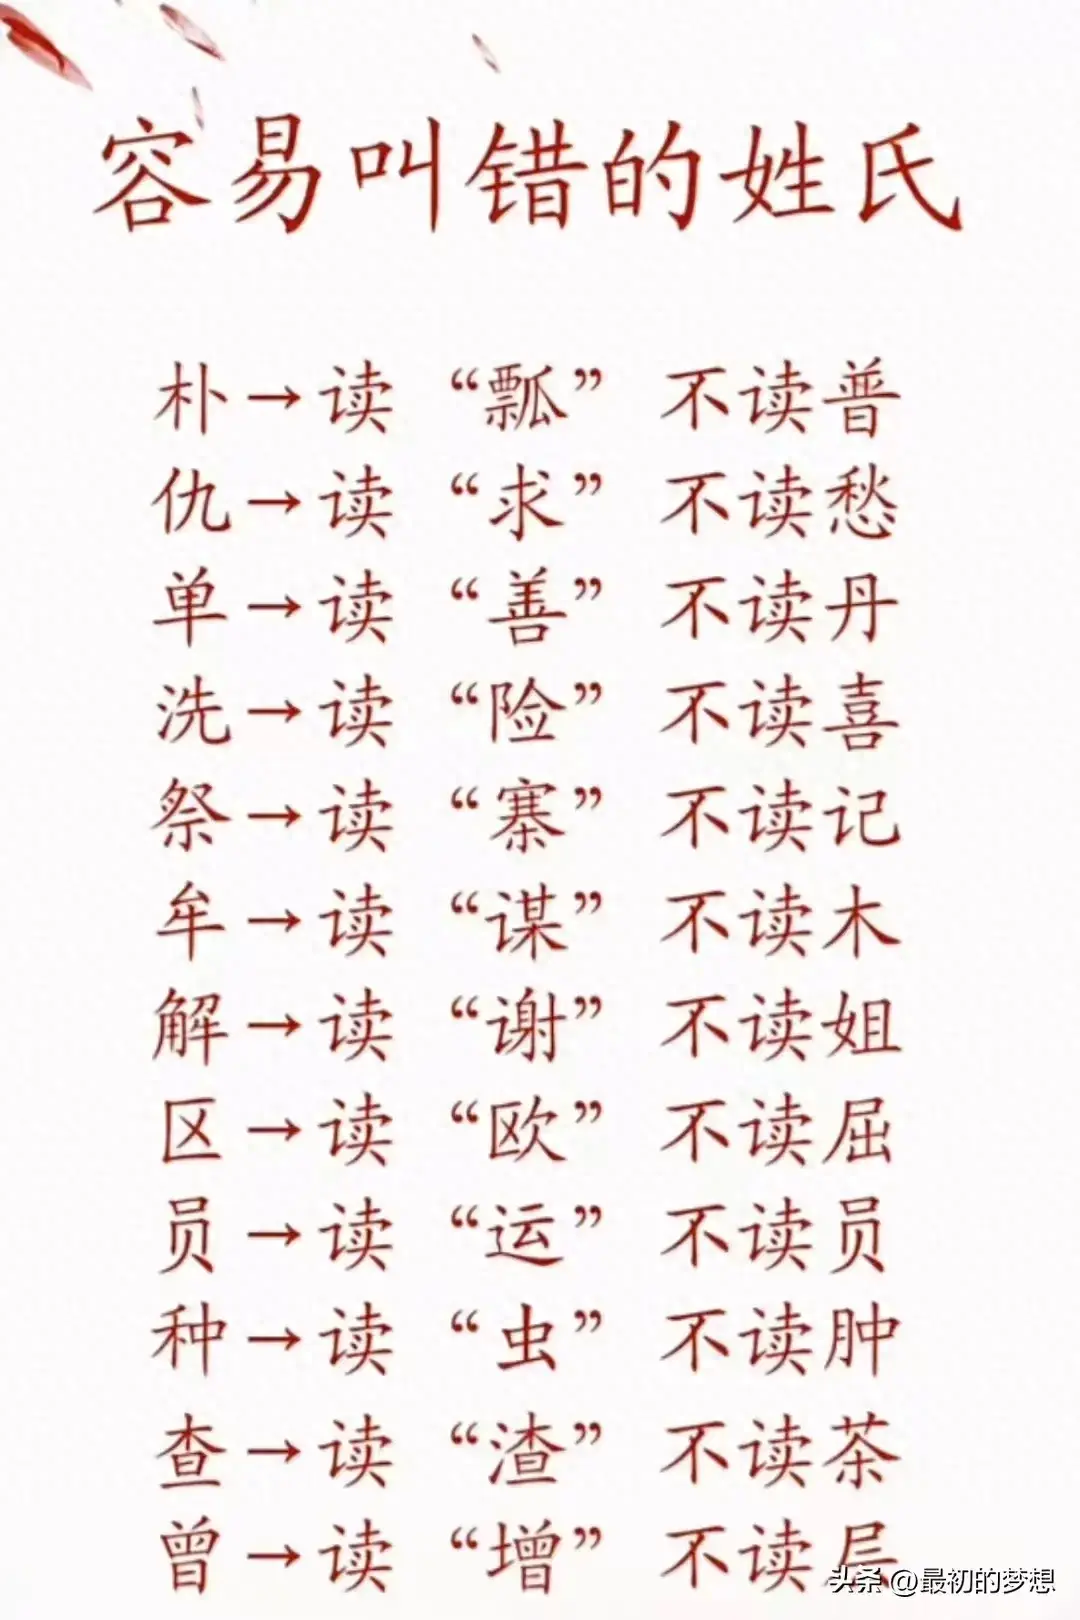 容易叫错的姓氏
朴→读 “瓢” 不读普
仇→读 “求” 不读愁
单→读 “善” 不读丹
洗→读 “险” 不读喜
祭→读 “寨” 不读记
牟→读 “谋” 不读木
解→读 “谢” 不读姐
区→读 “欧” 不读屈
员→读 “运” 不读员
种→读 “虫” 不读肿
查→读 “渣” 不读茶
曾→读 “增” 不读层
头条 @最初的梦想